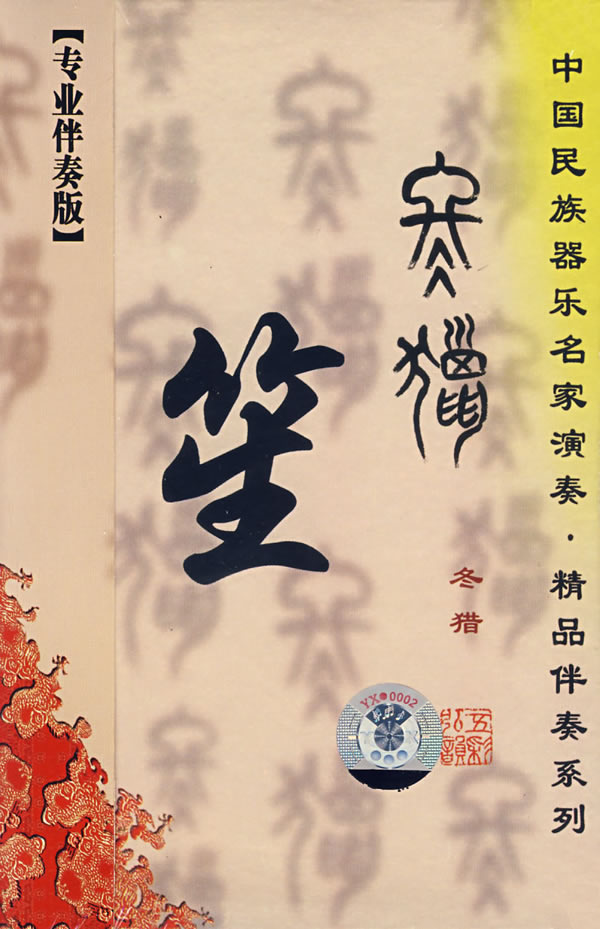 中国民族器乐名家演奏·精品伴奏系列
冬獵
冬猎
笙
【专业伴奏版】
YX 0002
五彩
弘韻